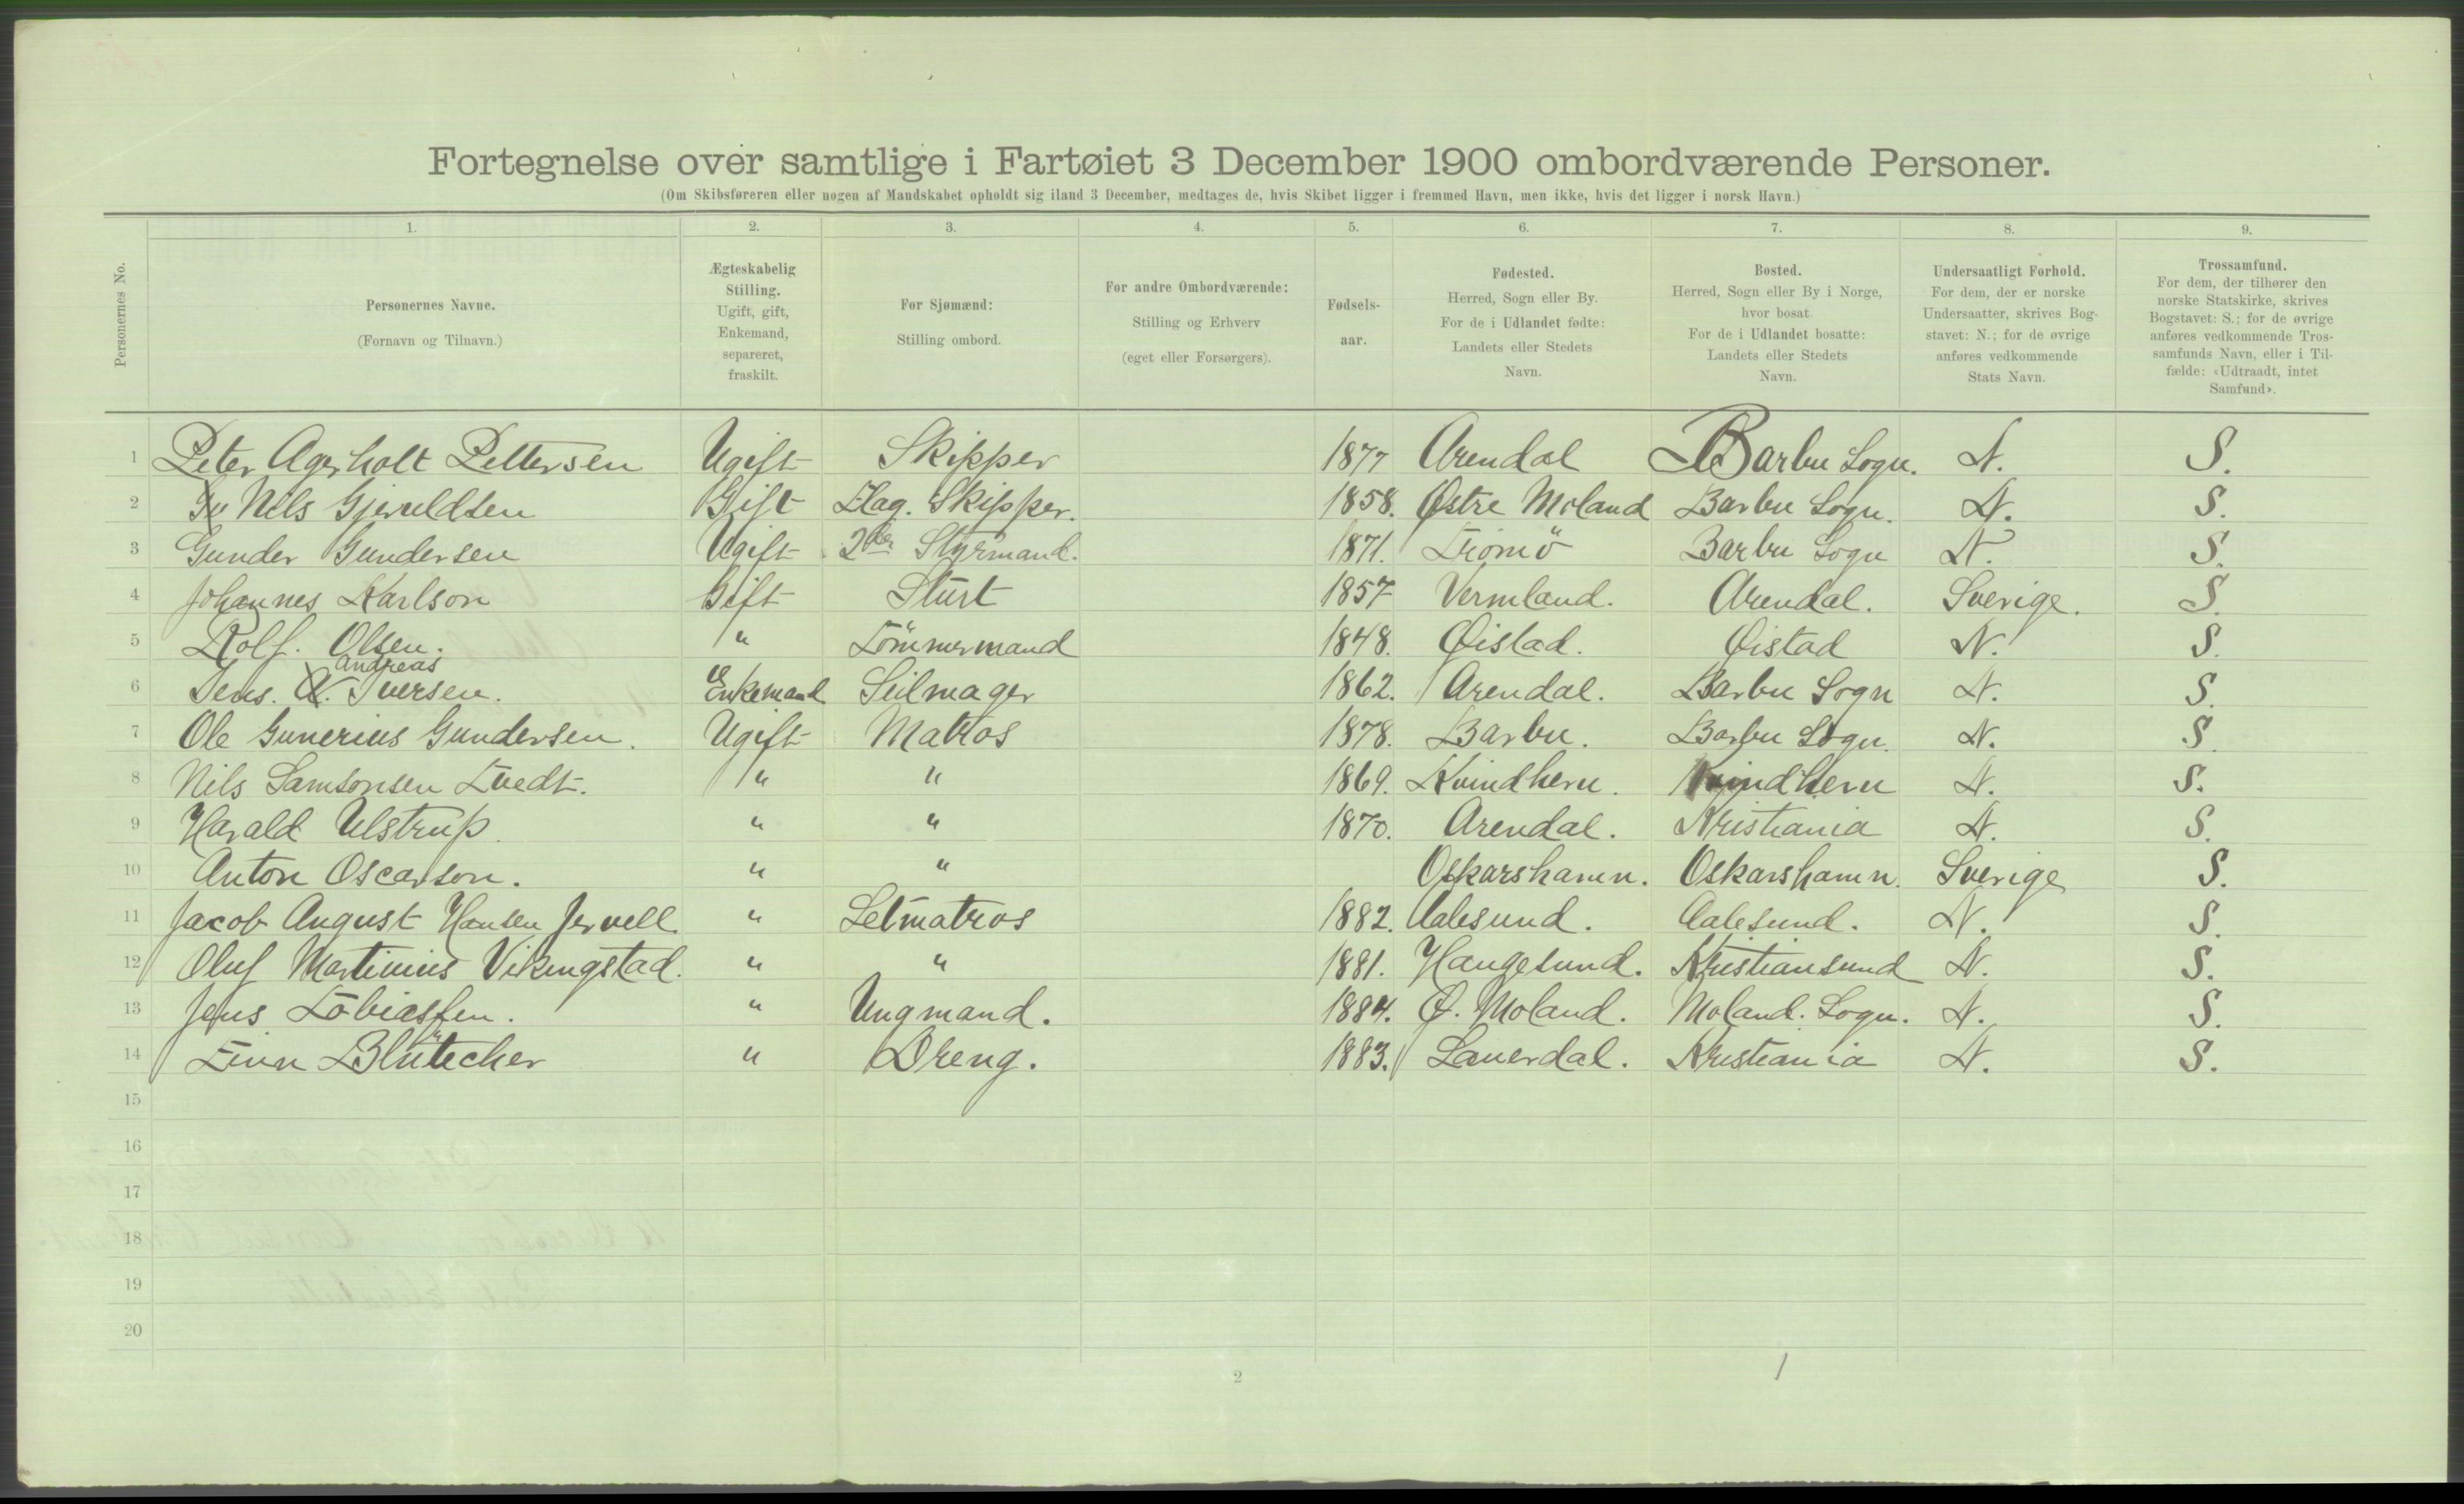 Fortegnelse over samtlige i Fartøiet 3 December 1900 ombordværende Personer.
(Om Skibsføreren eller nogen af Mandskabet opholdt sig iland 3 December, medtages de, hvis Skibet ligger i fremmed Havn, men ikke, hvis det ligger i norsk Havn.)
Personernes No.
1. 2. 3. 4. 5. 6. 7. 8. 9.
Personernes Navne.
(Fornavn og Tilnavn.)
Ægteskabelig
Stilling.
Ugift, gift,
Enkemand,
separeret,
fraskilt.
For Sjømænd:
Stilling ombord.
For andre Ombordværende:
Stilling og Erhverv
(eget eller Forsørgers).
Fødsels-
aar.
Fødested.
Herred, Sogn eller By.
For de i Udlandet fødte:
Landets eller Stedets
Navn.
Bosted.
Herred, Sogn eller By i Norge,
hvor bosat
For de i Udlandet bosatte:
Landets eller Stedets
Navn.
Undersaatligt Forhold.
For dem, der er norske
Undersaatter, skrives Bog-
stavet: N.; for de øvrige
anføres vedkommende
Stats Navn.
Trossamfund.
For dem, der tilhører den
norske Statskirke, skrives
Bogstavet: S.; for de øvrige
anføres vedkommende Tros-
samfunds Navn, eller i Til-
fælde: «Udtraadt, intet
Samfund».
1 Peter Agerholt Pettersen Ugift Skipper 1877 Arendal Barbu Sogn. N. S.
2 Nils Gjeruldsen Gift Flag. Skipper. 1858. Østre Moland Barbu Sogn. N. S.
3 Gunder Gundersen Ugift 2den Styrmand. 1871. Tromö Barbu Sogn N. S.
4 Johannes Karlson Gift Stürt 1857 Vermland. Arendal. Sverige. S.
5 Rolf. Olsen. " Tömmermand 1848. Øistad. Øistad N. S.
Andreas
6 Jens. N. Iversen. Enkemand Seilmager 1862. Arendal. Barbu Sogn N. S.
7 Ole Gunerius Gundersen. Ugift Matros 1878. Barbu. Barbu Sogn. N. S.
8 Nils Samsonsen Tvedt. " " 1869. Kvindhern. Kvindhern N. S.
9 Harald Ulstrup. " " 1870. Arendal. Kristiania N. S.
10 Anton Oscarson. " " Oskarshamn. Oskarshamn. Sverige S.
11 Jacob August Hansen Jervell " Letmatros 1882. Aalesund. Aalesund. N. S.
12 Oluf Martinius Vikingstad. " " 1881. Haugesund. Kristiansund N. S.
13 Jens Tobiassen. " Ungmand. 1884. Ø. Moland. Moland. Sogn. N. S.
14 Finn Blütecher " Dreng. 1883. Laurdal. Kristiania N. S.
15
16
17
18
19
20
2
1